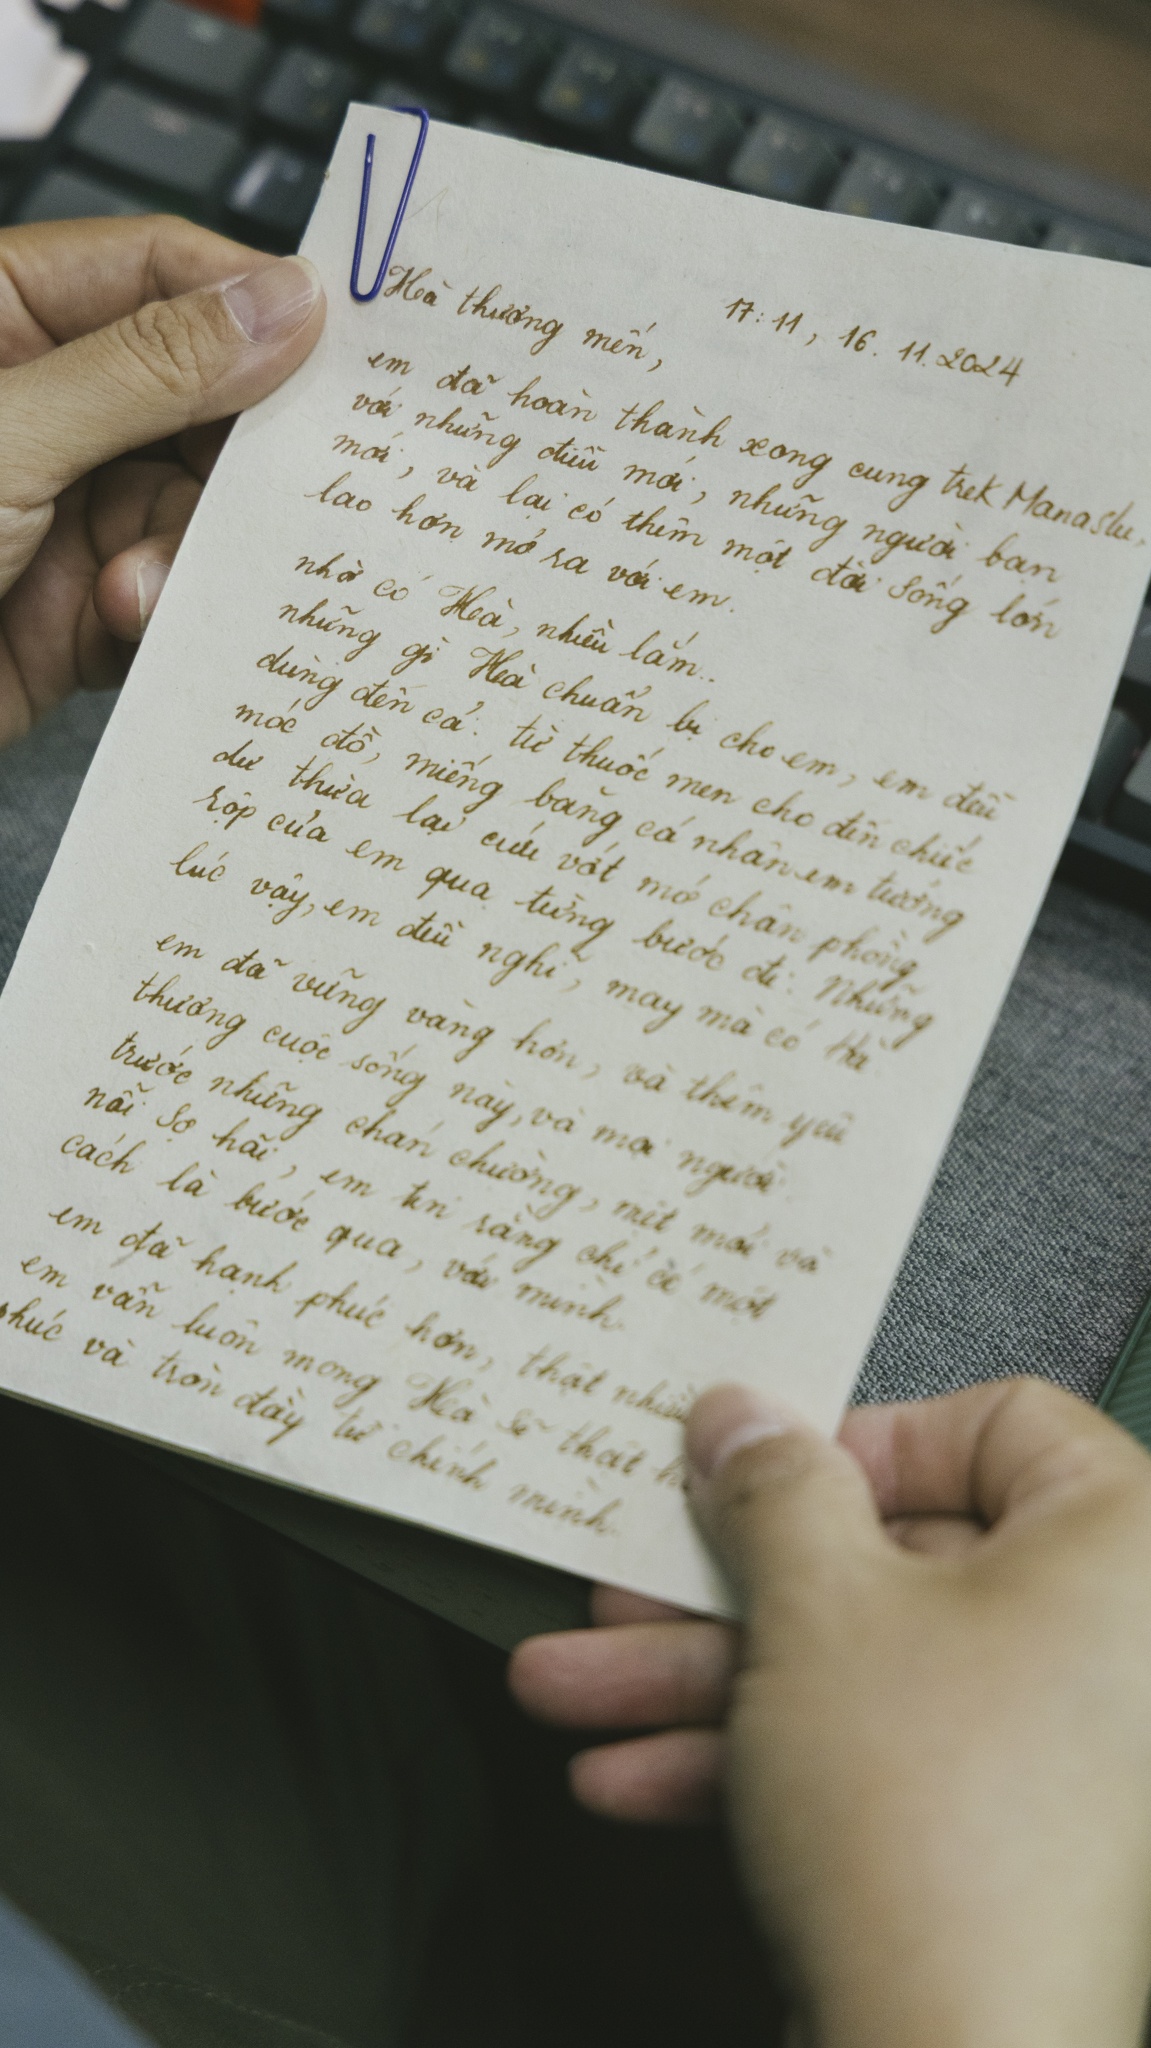 17:11, 16.11.2024
Hoà thương mến,
em đã hoàn thành xong cung trek Manaslu,
với những điều mới, những người bạn
mới, và lại có thêm một đời sống lớn
lao hơn mở ra với em.
nhờ có Hoà, nhiều lắm..
những gì Hoà chuẩn bị cho em, em đều
dùng đến cả: từ thuốc men cho đến chiếc
móc đồ, miếng băng cá nhân em tưởng
dư thừa lại cứu vớt mớ chân phồng
rộp của em qua từng bước đi. Những
lúc vậy, em đều nghĩ, may mà có Hoà.
em đã vững vàng hơn, và thêm yêu
thương cuộc sống này, và mọi người.
trước những chán chường, mệt mỏi và
nỗi sợ hãi, em tin rằng chỉ có một
cách là bước qua, với mình.
em đã hạnh phúc hơn, thật nhiều
em vẫn luôn mong Hoà sẽ thật
phúc và tròn đầy từ chính mình.